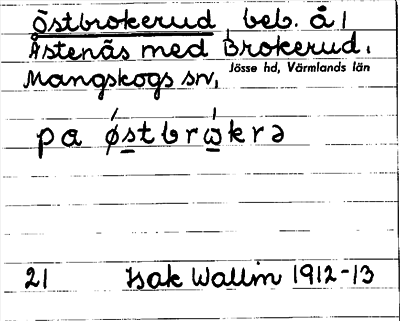 Östbrokerud, beb. å 1
Åstenäs med Brokerud.
Mangskogs sn, Jösse hd, Värmlands län
pa ǿstbrẃkrə
21 Isak Wallin 1912-13